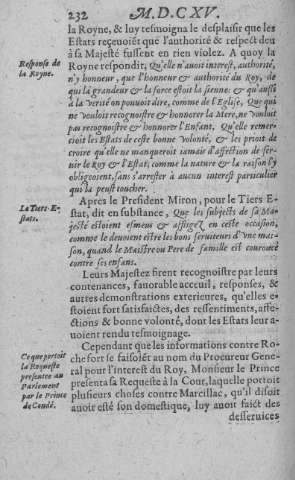 232 M. D. C. XV.
la Royne, & luy tesmoigna le desplaisir que les
Estats receuoiẽt que l'authorité & respect deu
à sa Majesté fussent en rien violez. A quoy la
Response de
la Royne.
Royne respondit, Qu'elle n'auoit interest, authorité,
n'y honneur, que l'honneur & authorité du Roy, de
qui la grandeur & la force estoit la sienne: & qu'aussi
à la verité on pouuoit dire, comme de l'Eglise, Que qui
ne vouloit recognoistre & honorer la Mere, ne vouloit
pas recognoistre & honorer l'Enfant. Qu'elle remer-
cioit les Estats de ceste bonne volonté, & les prioit de
croire qu'elle ne manqueroit iamais d'affection de ser-
uir le Roy & l'Estat, comme la nature & la raison l'y
obligeoient, sans s'arrester à aucun interest particulier
qui la peust toucher.
Le Tiers-E-
stats.
Apres le President Miron, pour le Tiers E-
stat, dit en substance, Que les subjects de sa Ma-
jesté estoient esmeus & affligez en ceste occasion,
comme le deuoient estre les bons seruiteurs d'vne mai-
son, quand le Maistre ou Pere de famille est courroucé
contre ses enfans.
Leurs Majestez firent recognoistre par leurs
contenances, fauorable accueil, responses, &
autres demonstrations exterieures, qu'elles e-
stoient fort satisfaictes, des ressentiments, affe-
ctions & bonne volonté, dont les Estats leur a-
uoient rendu tesmoignage.
Ce que portoit
la Requeste
presentee au
Parlement
par le Prince
de Condé.
Cependant que les informations contre Ro-
chefort se faisoiẽt au nom du Procureur Gene-
ral pour l'interest du Roy, Monsieur le Prince
presenta sa Requeste à la Cour, laquelle portoit
plusieurs choses contre Marcillac, qu'il disoit
auoir esté son domestique, luy auoit faict des
desseruices